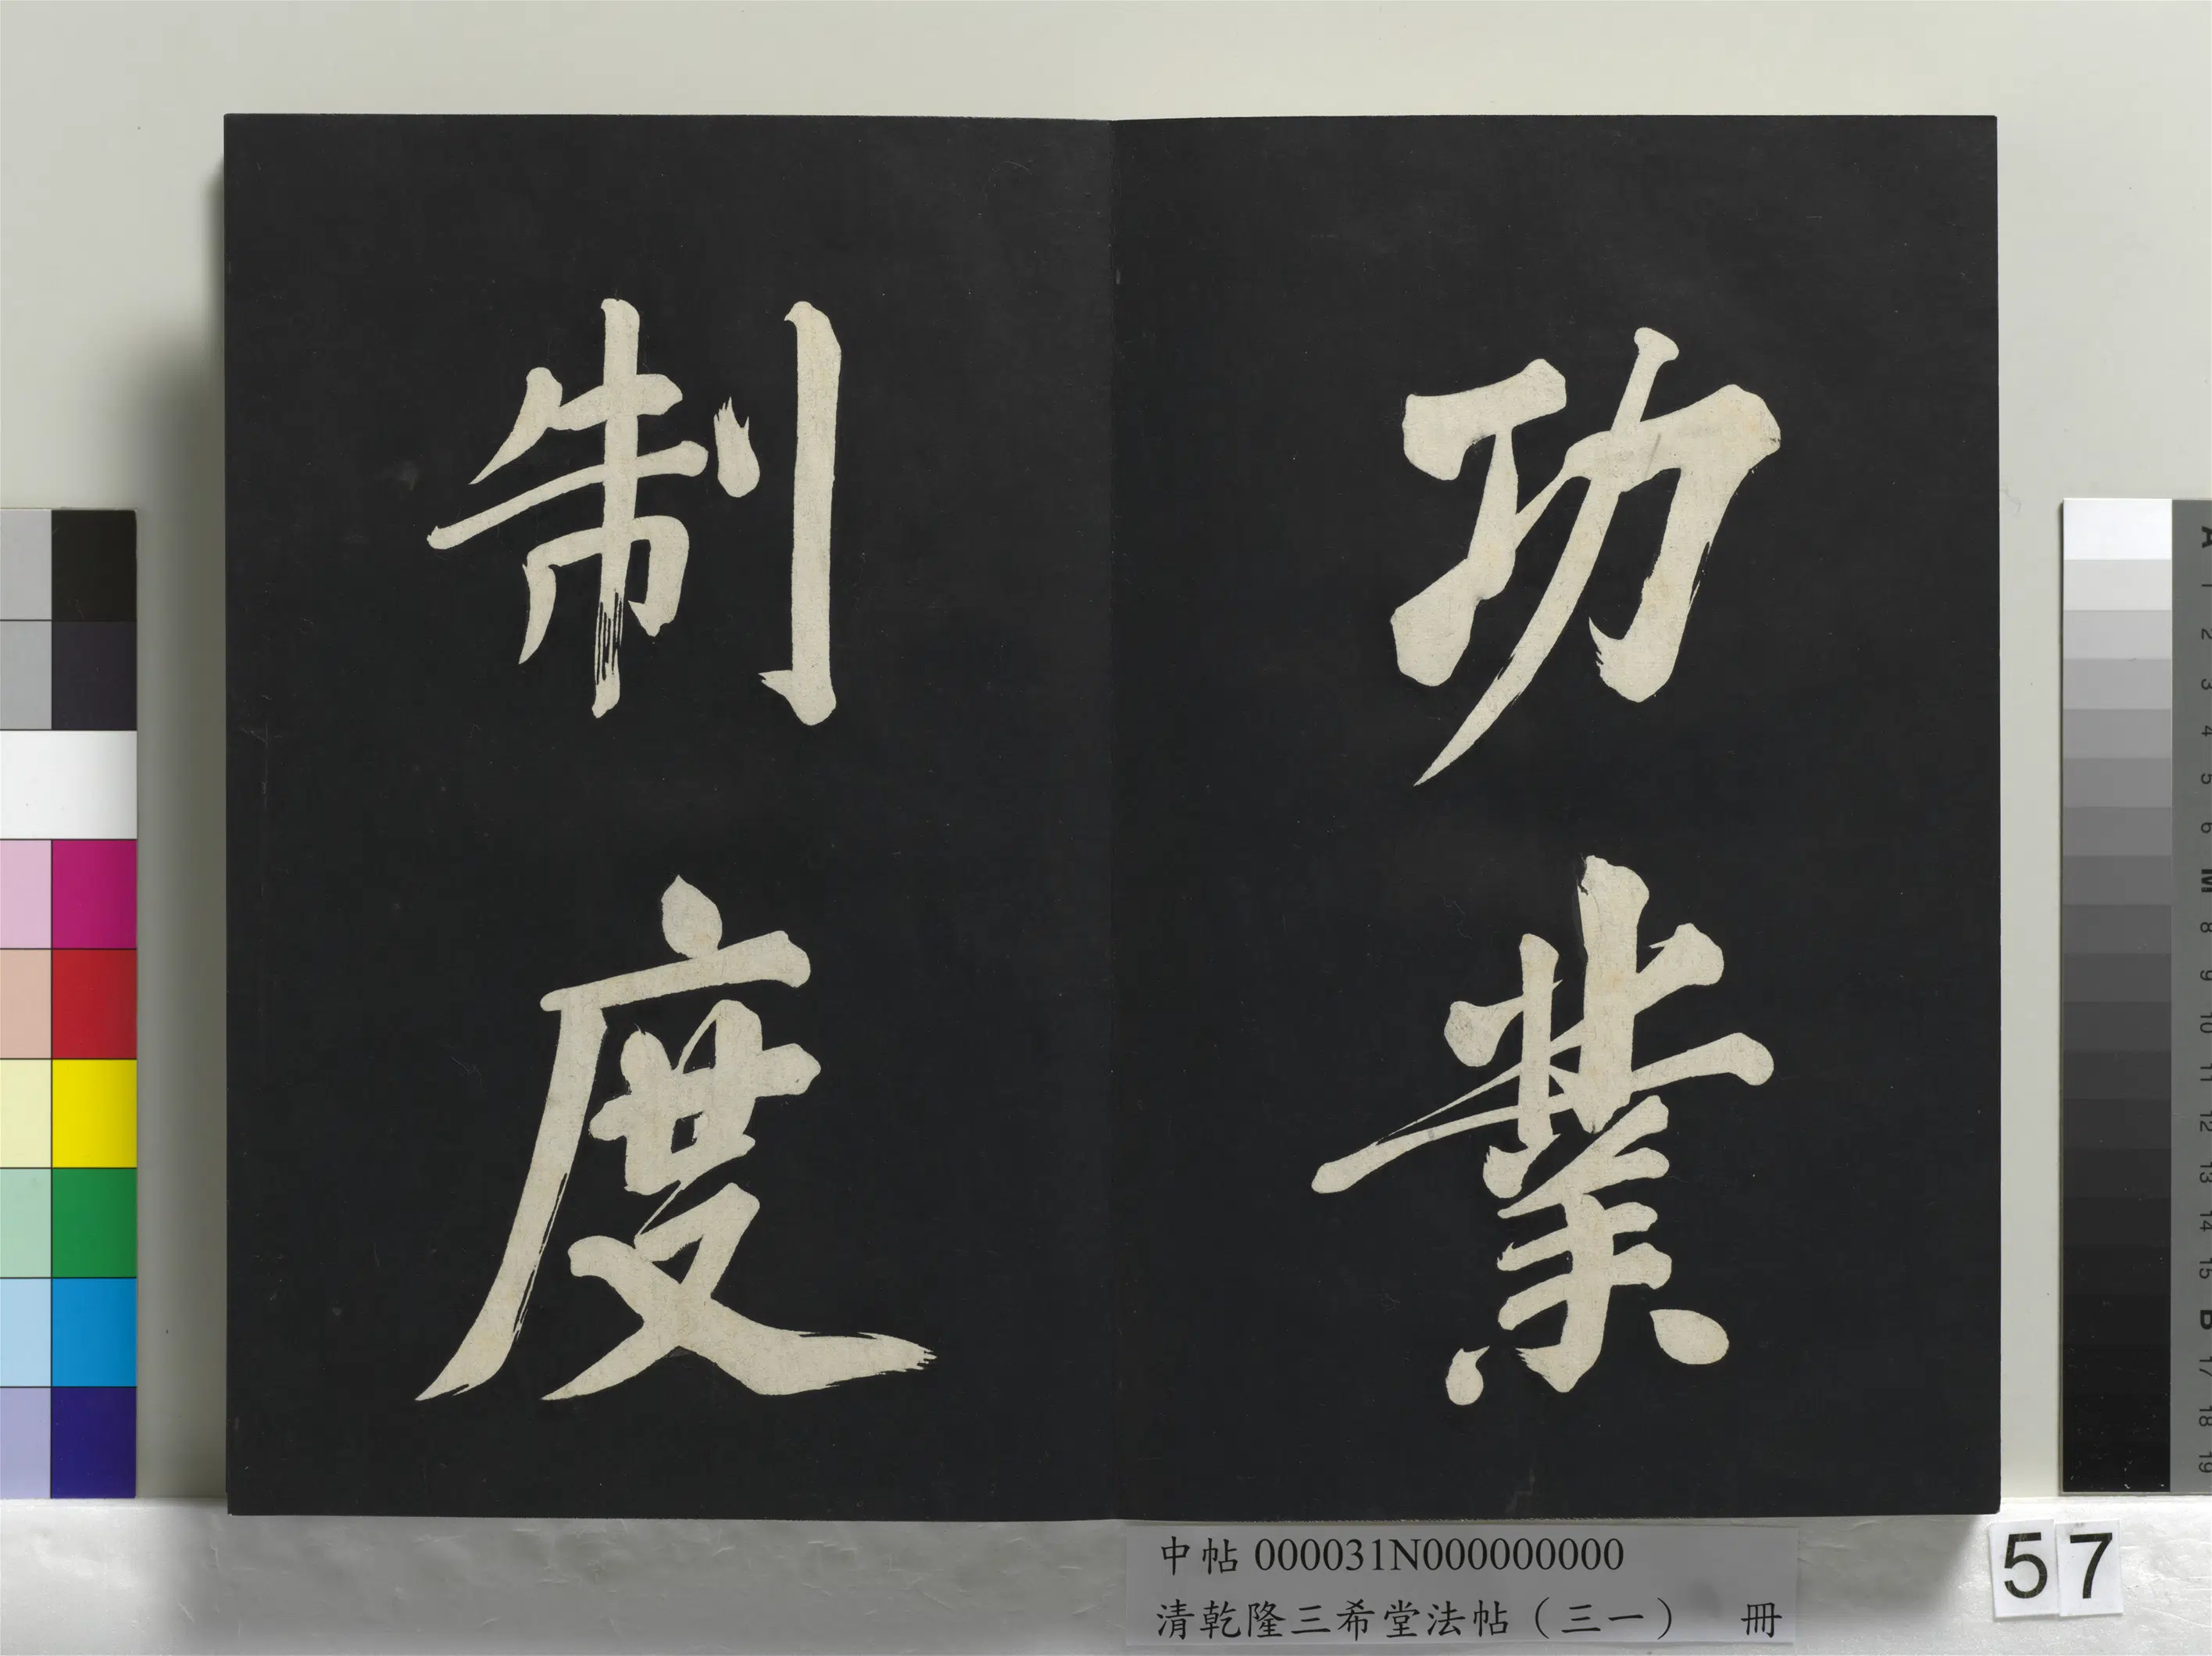 功業
制度
中帖 000031N000000000
清乾隆三希堂法帖（三一） 冊
57
A
1
2
3
4
5
6
M
8
9
10
11
12
13
14
15
B
17
18
19